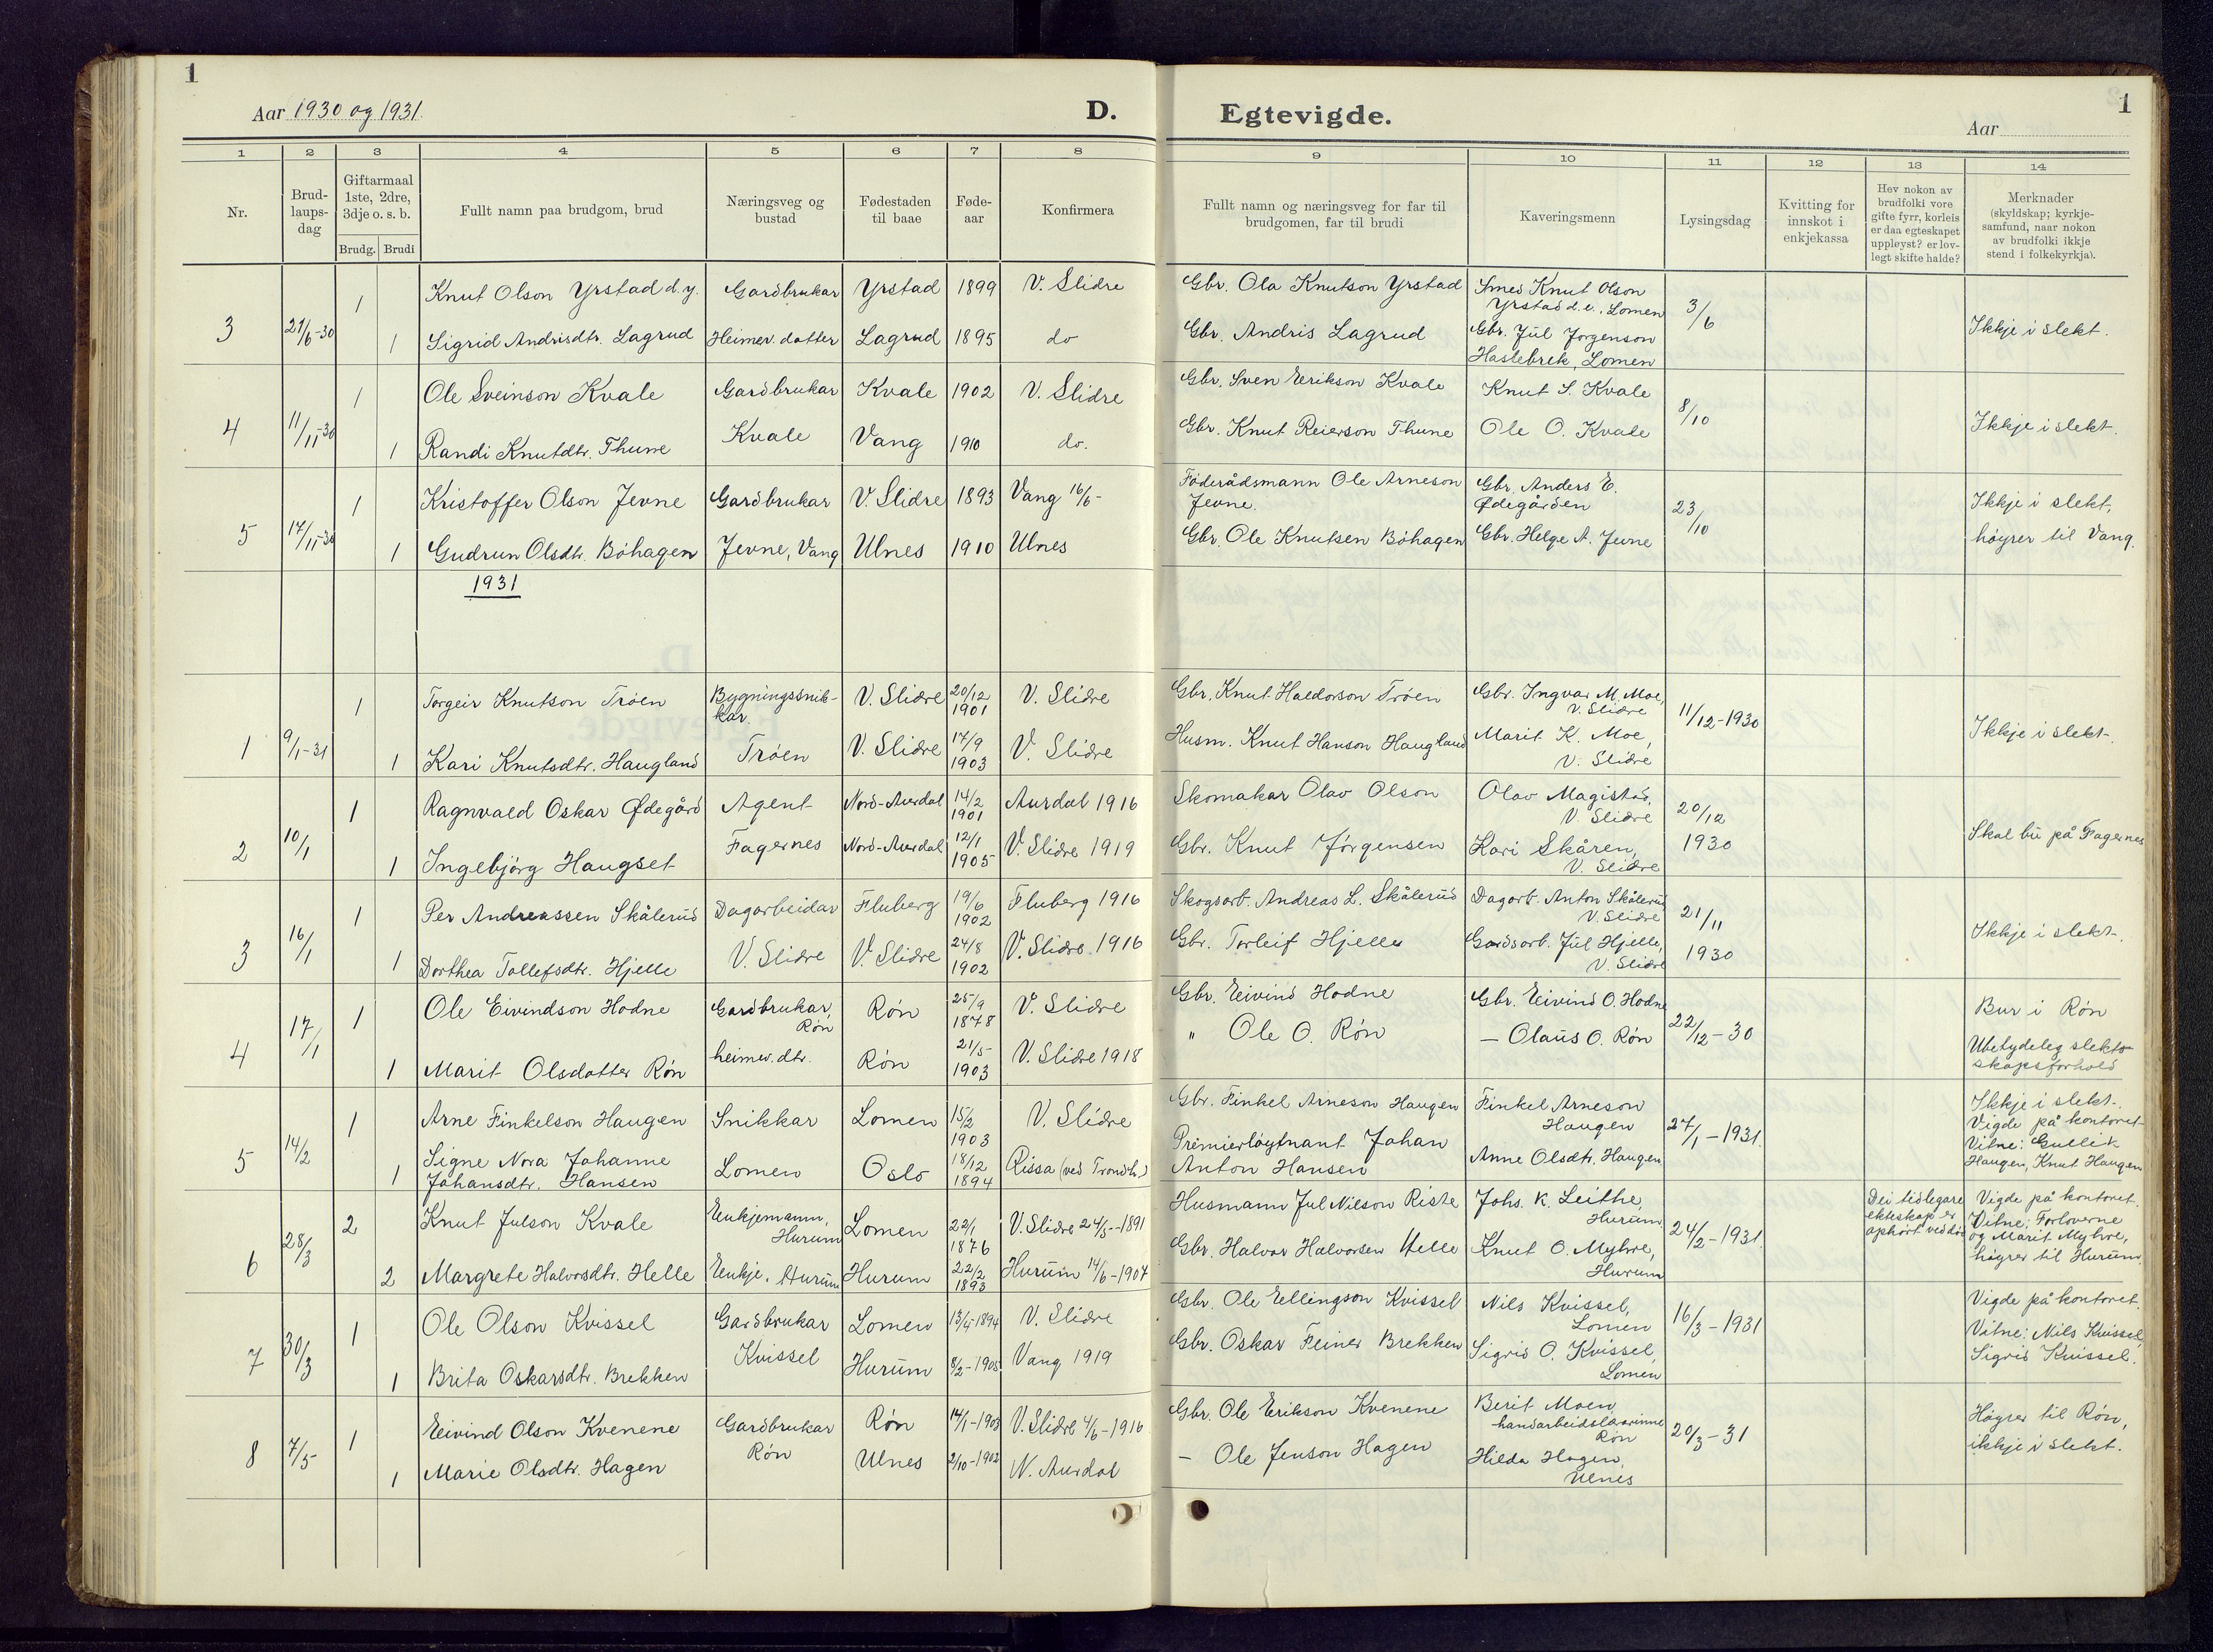 1
Aar 1930 og 1931.
D.
Egtevigde.
Aar
1
1 2 3 4 5 6 7 8 9 10 11 12 13 14
Nr.
Brud-
laups-
dag
Giftarmaal
1ste, 2dre,
3dje o. s. b.
Brudg. Brudi
Fullt namn paa brudgom, brud
Næringsveg og
bustad
Fødestaden
til baae
Føde-
aar
Konfirmera
Fullt namn og næringsveg for far til
brudgomen, far til brudi
Kaveringsmenn
Lysingsdag
Kvitting for
innskot i
enkjekassa
Hev nokon av
brudfolki vore
gifte fyrr, korleis
er daa egteskapet
uppløyst? er lov-
legt skifte halde?
Merknader
(skyldskap; kyrkje-
samfund, naar nokon
av brudfolki ikkje
stend i folkekyrkja).
3 21/6-30
1 Knut Olson Yrstad d.y. Gardbrukar Yrstad 1899 V. Slidre
1 Sigrid Andrisdtr. Lagrud Heimev. datter Lagrud 1895 do
Gbr. Ola Knutson Yrstad
Gbr. Andris Lagrud
Smed Knut Olson
Yrstad d.e., Lomen
Gbr. Jul Jørgenson
Hastebrek, Lomen
3/6
Ikkje i slekt.
4 11/11-30
1 Ole Sveinson Kvale Gardbrukar Kvale 1902 V. Slidre
1 Randi Knutdtr. Thune Kvale Vang 1910 do.
Gbr. Sven Erikson Kvale
Gbr. Knut Reierson Thune
Knut S. Kvale
Ole O. Kvale
8/10
Ikkje i slekt.
5 17/11-30
1 Kristoffer Olson Jevne Gardbrukar V. Slidre 1893 Vang 16/6-
1 Gudrun Olsdtr. Bøhagen Jevne, Vang Ulnes 1910 Ulnes
Føderådsmann Ole Arneson
Jevne.
Gbr. Ole Knutsen Bøhagen
Gbr. Anders E.
Ødegården
Gbr. Helge A. Jevne
23/10
Ikkje i slekt,
høyrer til Vang.
1931
1 9/1-31
1 Torgeir Knutson Trøen Bygningssnik-
kar. V. Slidre 20/12
1901 V. Slidre
1 Kari Knutsdtr. Haugland Trøen V. Slidre 17/9
1903 V. Slidre
Gbr. Knut Haldorson Trøen
Husm. Knut Hanson Haugland
Gbr. Ingvar M. Moe,
V. Slidre
Marit K. Moe,
V. Slidre
11/12-1930
Ikkje i slekt.
2 10/1
1 Ragnvald Oskar Ødegård Agent Nord-Aurdal 14/2
1901 Aurdal 1916
1 Ingebjørg Haugset Fagernes Nord-Aurdal 12/1
1905 V. Slidre 1919
Skomakar Olav Olson
Gbr. Knut Jørgensen
Olav Magistad,
V. Slidre
Kari Skåren,
V. Slidre
20/12
1930
Skal bu på Fagernes
3 16/1
1 Per Andreassen Skålerud Dagarbeidar Fluberg 19/6
1902 Fluberg 1916
1 Dorthea Tollefsdtr. Hjelle V. Slidre V. Slidre 24/8
1902 V. Slidre 1916
Skogsarb. Andreas L. Skålerud
Gbr. Torleif Hjelle
Dagarb. Anton Skålerud
V. Slidre
Gardsarb. Jul Hjelle,
V. Slidre
21/11
1930
Ikkje i slekt.
4 17/1
1 Ole Eivindson Hodne Gardbrukar,
Røn Røn 25/9
1878 V. Slidre
1 Marit Olsdatter Røn heimev. dtr. Røn 21/5-
1903 V. Slidre 1918
Gbr. Eivind Hodne
" Ole O. Røn
Gbr. Eivind O. Hodne
— Olaus O. Røn
22/12-30
Bur i Røn
Ubetydeleg slekt-
skapsforhold
5 14/2
1 Arne Finkelson Haugen Snikkar Lomen 15/2
1903 V. Slidre
1 Signe Nora Johanne
Johansdtr. Hansen Lomen Oslo 18/12
1894 Rissa (ved Trondh.)
Gbr. Finkel Arneson Haugen
Premierløytnant Johan
Anton Hansen
Finkel Arneson
Haugen
Anne Olsdtr. Haugen
27/1-1931.
Ikkje i slekt.
Vigde på kontoret
Vitne: Gullik
Haugen, Knut Haugen
6 28/3
2 Knut Julson Kvale Enkjemann,
Hurum Lomen 22/1
1876 V. Slidre 24/5-1891
2 Margrete Halvorsdtr. Helle Enkje, Hurum Hurum 22/2
1893 Hurum 14/6-1907
Husmann Jul Nilson Riste
Gbr. Halvor Halvorsen Helle
Johs. K. Leithe,
Hurum
Knut O. Myhre,
Hurum
24/2-1931.
Dei tidlegare
ekteskap er
ophørt ved død
Vigde på kontoret.
Vitne: Forloverne
og Marit Myhre,
høyrer til Hurum.
7 30/3
1 Ole Olson Kvissel Gardbrukar Lomen 13/4-1894 V. Slidre
1 Brita Oskarsdtr. Brekken Kvissel Hurum 8/2-1905 Vang 1919
Gbr. Ole Ellingson Kvissel
Gbr. Oskar Feiner Brekken
Nils Kvissel,
Lomen
Sigrid O. Kvissel,
Lomen
16/3-1931
Vigde på kontoret.
Vitne: Nils Kvissel,
Sigrid Kvissel.
8 7/5
1 Eivind Olson Kvenene Gardbrukar Røn 14/1-1903 V. Slidre 4/6-1916
1 Marie Olsdtr. Hagen Røn Ulnes 2/10-1902 N. Aurdal
Gbr. Ole Erikson Kvenene
- Ole Jenson Hagen
Berit Moen,
handarbeidslærinne
Røn
Hilda Hagen,
Ulnes
20/3-31
Høyrer til Røn,
ikkje i slekt.